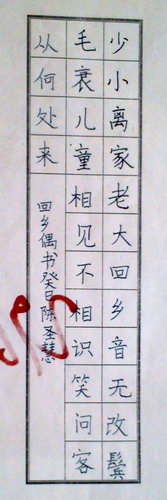 少小离家老大回乡音无改鬓
毛衰儿童相见不相识笑问客
从何处来
回乡偶书癸巳陈圣慧